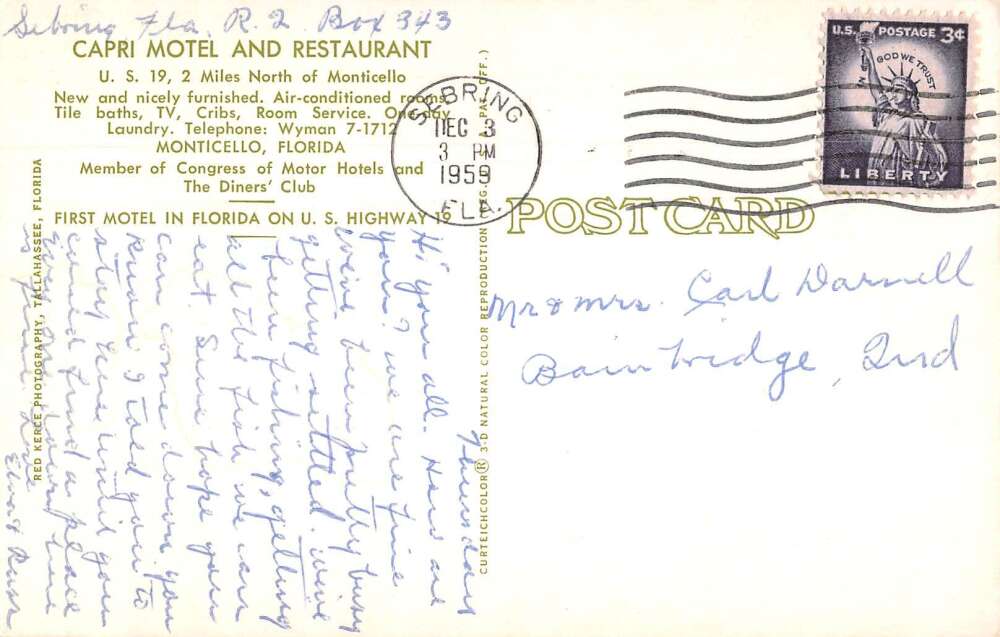 Sebring Fla. R. 2 Box 343
CAPRI MOTEL AND RESTAURANT
U. S. 19, 2 Miles North of Monticello
New and nicely furnished. Air-conditioned rooms.
Tile baths, TV, Cribs, Room Service. One-day
Laundry. Telephone: Wyman 7-1712
MONTICELLO, FLORIDA
Member of Congress of Motor Hotels and
The Diners' Club
FIRST MOTEL IN FLORIDA ON U. S. HIGHWAY 19
RED KERCE PHOTOGRAPHY, TALLAHASSEE, FLORIDA
CURTEICHCOLOR® 3-D NATURAL COLOR REPRODUCTION U.S. PAT. OFF.)
SEBRING
DEC 3
3 PM
1959
FLA.
U.S. POSTAGE 3¢
IN GOD WE TRUST
LIBERTY
POST CARD
Mr & Mrs. Carl Darnell
Bainbridge, Ind
Thursday
Hi you all. How are
you? we are fine
we've been pretty busy
getting settled. we've
been fishing, getting
all the fish we can
eat. Sure hope you
can come down, you
know I told you to
stay here until you
could find a place
is fine. Love